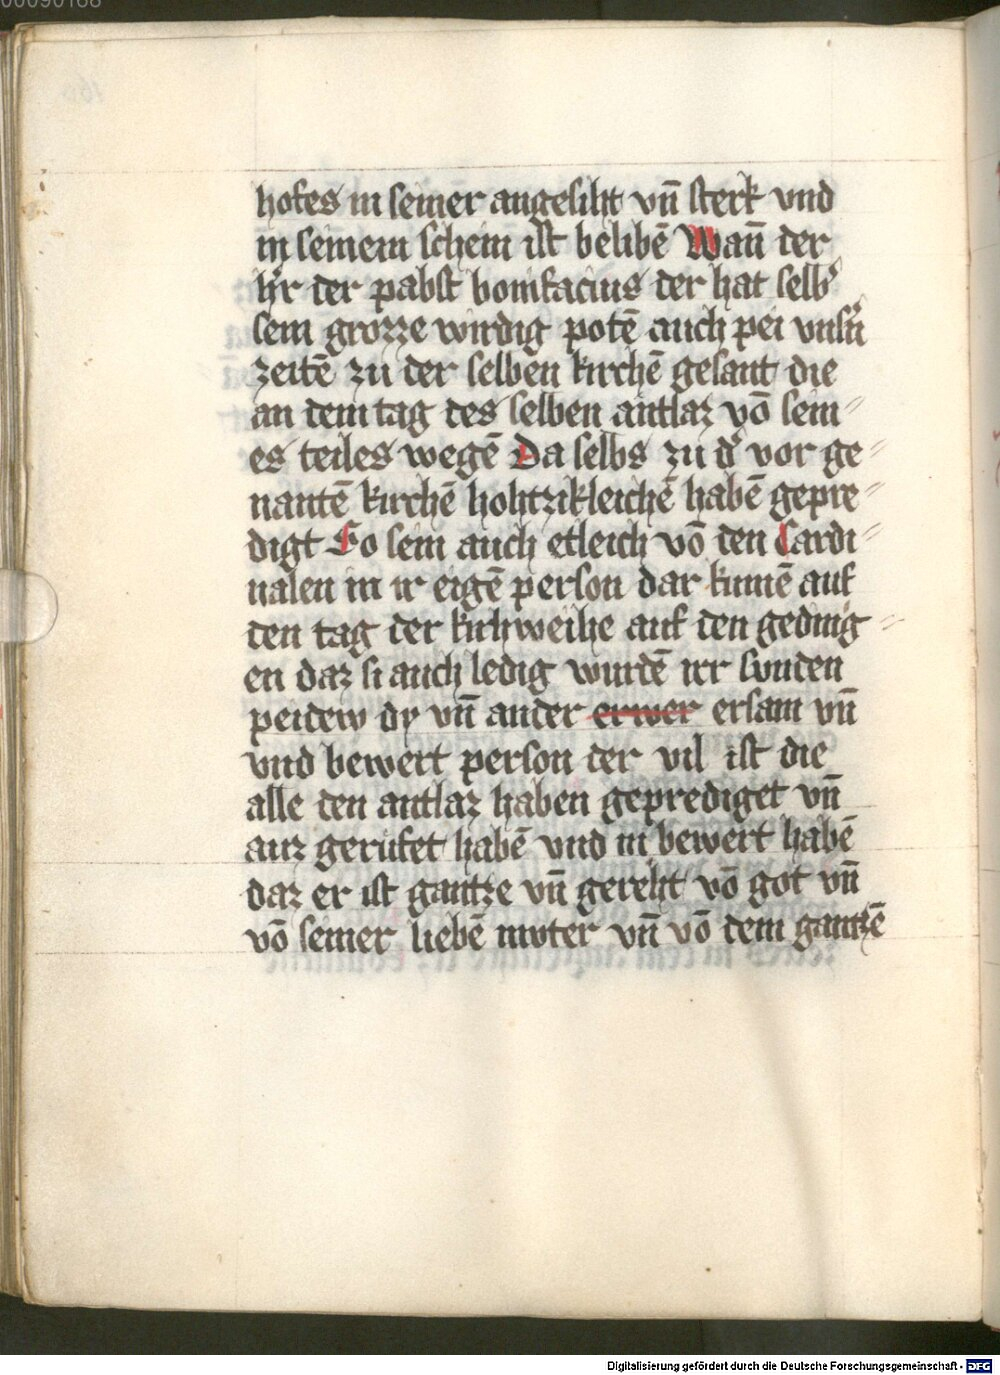 00090168
hofes in seiner angesiht vn̄ sterk vnd
in seinem schein ist belibē Wan̄ der
hr̄ der pabst bonifacius der hat selbʼ
sein grozze wirdig potē auch pei vnsn̄
zeitē zu der selben kirchē gesant die
an dem tag des selben antlaz vō sein⸗
es teiles wegē Da selbs zu dʼ vor ge⸗
nantē kirchē hohtzikleichē habē gepre⸗
digt So sein auch etleich vō den Cardi⸗
nalen in ir eigē person dar kumē auf
den tag der kirhweihe auf den geding⸗
en daz si auch ledig wurdē irr sunden
peidew dy vn̄ ander erwer ersam vn̄
vnd bewert person der vil ist die
alle den antlaz haben geprediget vn̄
auz gerufet habē vnd in bewert habē
daz er ist gantze vn̄ gereht vō got vn̄
vō seiner liebē muter vn̄ vō dem gantzē
Digitalisierung gefördert durch die Deutsche Forschungsgemeinschaft - DFG